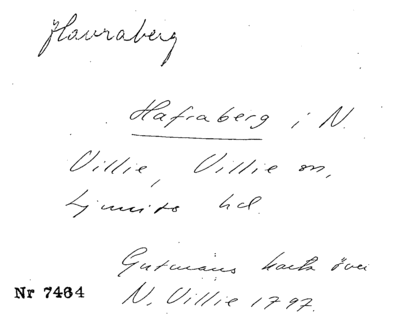 Havraberg
Hafraberg i N.
Villie, Villie sn,
Ljunits hd.
Gutmans karta över
N. Villie 1797.
Nr 7464